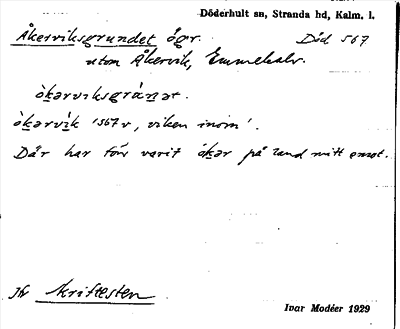 Döderhult sn, Stranda hd, Kalm. l.
Åkerviksgrundet ögr. Död 567
utom Åkervik, Emmekalv.
ò̀kərviksgrànət.
ò̀kərvìk 567 v, viken inom'.
Där har förr varit ókər på land mitt emot.
Jfr Skriftesten
Ivar Modéer 1929